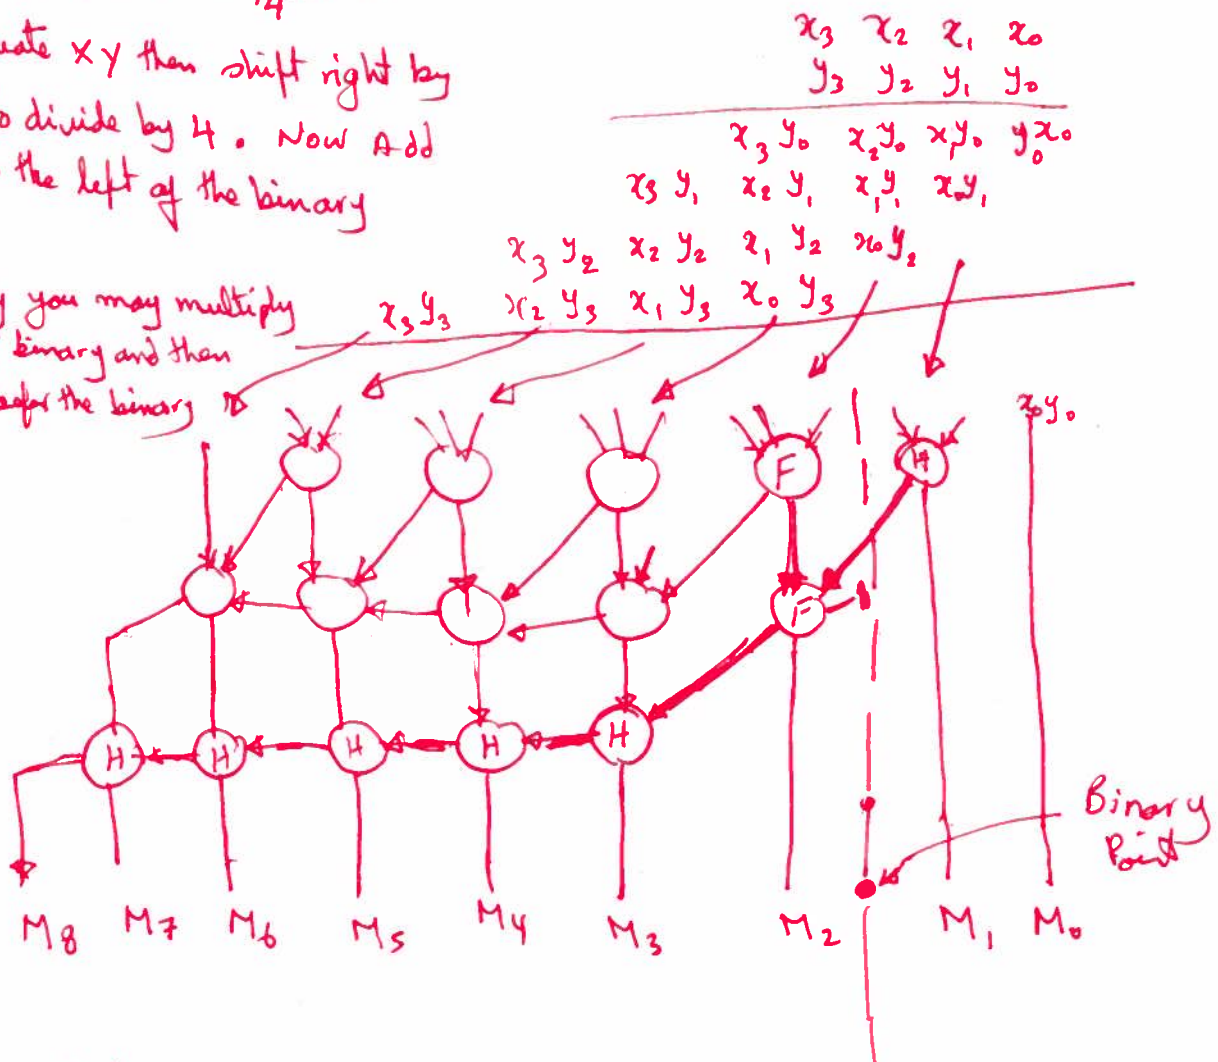 4
uate XY then shift right by
o divide by 4. Now Add
the left of the binary
y you may multiply
binary and then
the binary
x3 x2 x1 x0
y3 y2 y1 y0
x3 y0 x2 y0 x1 y0 y0 x0
x3 y1 x2 y1 x1 y1 x0 y1
x3 y2 x2 y2 x1 y2 x0 y2
x3 y3 x2 y3 x1 y3 x0 y3
x0 y0
F H
F
H H H H H
Binary
Point
M8 M7 M6 M5 M4 M3 M2 M1 M0